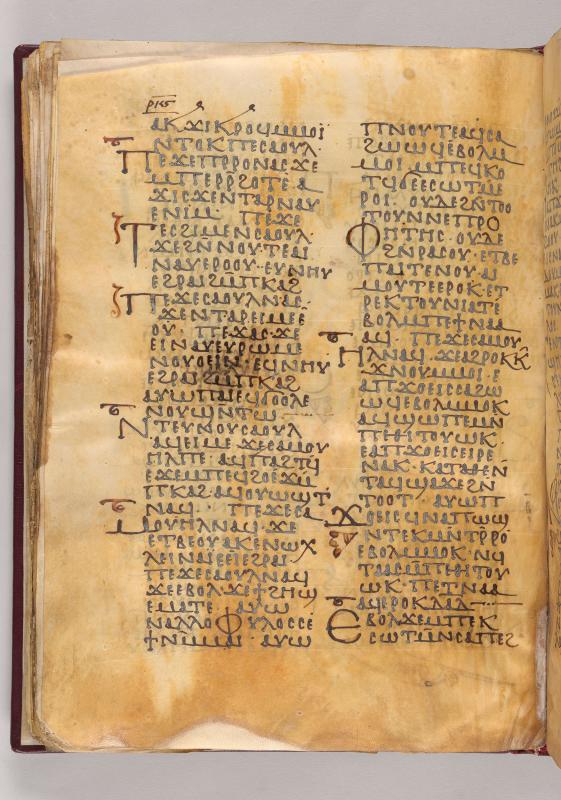 ⲣⲕⲋ
ⲁⲕϫⲓⲕⲣⲟϥⲙⲙⲟⲓ
ⲛⲧⲟⲕⲡⲉⲥⲁⲟⲩⲗ
ⲡⲉϫⲉⲡⲣⲣⲟⲛⲁⲥϫⲉ
ⲙⲡⲉⲣⲣϩⲟⲧⲉ ⲁ
ϫⲓⲥϫⲉⲛⲧⲁⲣⲛⲁⲩ
ⲉⲛⲓⲙ ⲡⲉϫⲉ
ⲧⲉⲥϩⲓⲙⲉⲛⲥⲁⲟⲩⲗ
ϫⲉϩⲛⲛⲟⲩⲧⲉⲁⲓ
ⲛⲁⲩⲉⲣⲟⲟⲩ·ⲉⲩⲛⲏⲩ
ⲉϩⲣⲁⲓϩⲙⲡⲕⲁϩ
ⲡⲉϫⲉⲥⲁⲟⲩⲗⲛⲁⲥ
ϫⲉⲛⲧⲁⲣⲉⲓⲙⲉⲉ
ⲟⲩ· ⲡⲉϫⲁⲥ·ϫⲉ
ⲉⲓⲛⲁⲩⲉⲩⲣⲱⲙⲉ
ⲛⲟⲩⲟⲉⲓⲛ·ⲉϥⲛⲏⲩ
ⲉϩⲣⲁⲓϩⲙⲡⲕⲁϩ
ⲁⲩⲱⲡⲁⲓⲉϥϭⲟⲟⲗⲉ
ⲛⲟⲩϣⲛⲧⲱ
ⲛⲧⲉⲩⲛⲟⲩⲥⲁⲟⲩⲗ
ⲁϥⲉⲓⲙⲉ ϫⲉⲥⲁⲙⲟⲩ
ⲏⲗⲡⲉ·ⲁϥⲡⲁϩⲧϥ
ⲉϫⲙⲡⲉϥϩⲟⲉϫⲙ
ⲡⲕⲁϩ·ⲁϥⲟⲩⲱϣⲧ
ⲛⲁϥ· ⲡⲉϫⲉⲥⲁ
ⲙⲟⲩⲏⲗⲛⲁϥ·ϫⲉ
ⲉⲧⲃⲉⲟⲩⲁⲕⲉⲛⲱⲭ
ⲗⲉⲓⲛⲁⲓⲉⲉⲓⲉϩⲣⲁⲓ
ⲡⲉϫⲉⲥⲁⲟⲩⲗⲛⲁϥ
ϫⲉⲉⲃⲟⲗϫⲉϯϩⲏϣ
ⲉⲙⲁⲧⲉ ⲁⲩⲱ
ⲛⲁⲗⲗⲟⲫⲩⲗⲟⲥⲥⲉ
ϯⲛⲙⲙⲁⲓ·ⲁⲩⲱ
ⲡⲛⲟⲩⲧⲉⲁϥⲥⲁ
ϩⲱⲱϥⲉⲃⲟⲗⲙ
ⲙⲟⲓ·ⲙⲡⲉϥⲕⲟ
ⲧϥϭⲉⲉⲥⲱⲧⲙⲉ
ⲣⲟⲓ·ⲟⲩⲇⲉϩⲛⲧⲟⲟ
ⲧⲟⲩⲛⲛⲉⲡⲣⲟ
ⲫⲏⲧⲏⲥ·ⲟⲩⲇⲉ
ϩⲛⲣⲁⲥⲟⲩ·ⲉⲧⲃⲉ
ⲡⲁⲓⲧⲉⲛⲟⲩ ⲁⲓ
ⲙⲟⲩⲧⲉⲉⲣⲟⲕ·ⲉⲧ
ⲣⲉⲕⲧⲟⲩⲛⲓⲁⲧⲉ
ⲃⲟⲗⲙⲡⲉϯⲛⲁⲁ
ⲁϥ· ⲡⲉϫⲉⲥⲁⲙⲟⲩ
ⲏⲗⲛⲁϥ·ϫⲉⲁϩⲣⲟⲕⲕ
ϫⲛⲟⲩⲙⲙⲟⲓ·ⲉ
ⲁⲡϫⲟⲉⲓⲥⲥⲁϩⲱ
ⲱϥⲉⲃⲟⲗⲙⲙⲟⲕ
ⲁϥϣⲱⲡⲉⲙⲛ
ⲡⲉⲑⲓⲧⲟⲩⲱⲕ·
ⲉⲁⲡϫⲟⲉⲓⲥⲉⲓⲣⲉ
ⲛⲁⲕ·ⲕⲁⲧⲁⲑⲉⲛ
ⲧⲁϥϣⲁϫⲉϩⲛ
ⲧⲟⲟⲧ· ⲁⲩⲱⲡ
ϫⲟⲉⲓⲥϥⲛⲁⲡⲱϣ
ⲛⲧⲉⲕⲙⲛⲧⲣⲣⲟ
ⲉⲃⲟⲗⲙⲙⲟⲕ·ⲛϥ
ⲧⲁⲁⲥⲙⲡⲉⲑⲓⲧⲟⲩ
ⲱⲕ·ⲡⲉⲧⲛⲁⲁ
ⲁϥⲉⲣⲟⲕⲇⲁⲇ
ⲉⲃⲟⲗϫⲉⲙⲡⲉⲕ
ⲥⲱⲧⲙⲛⲥⲁⲡⲉϩ